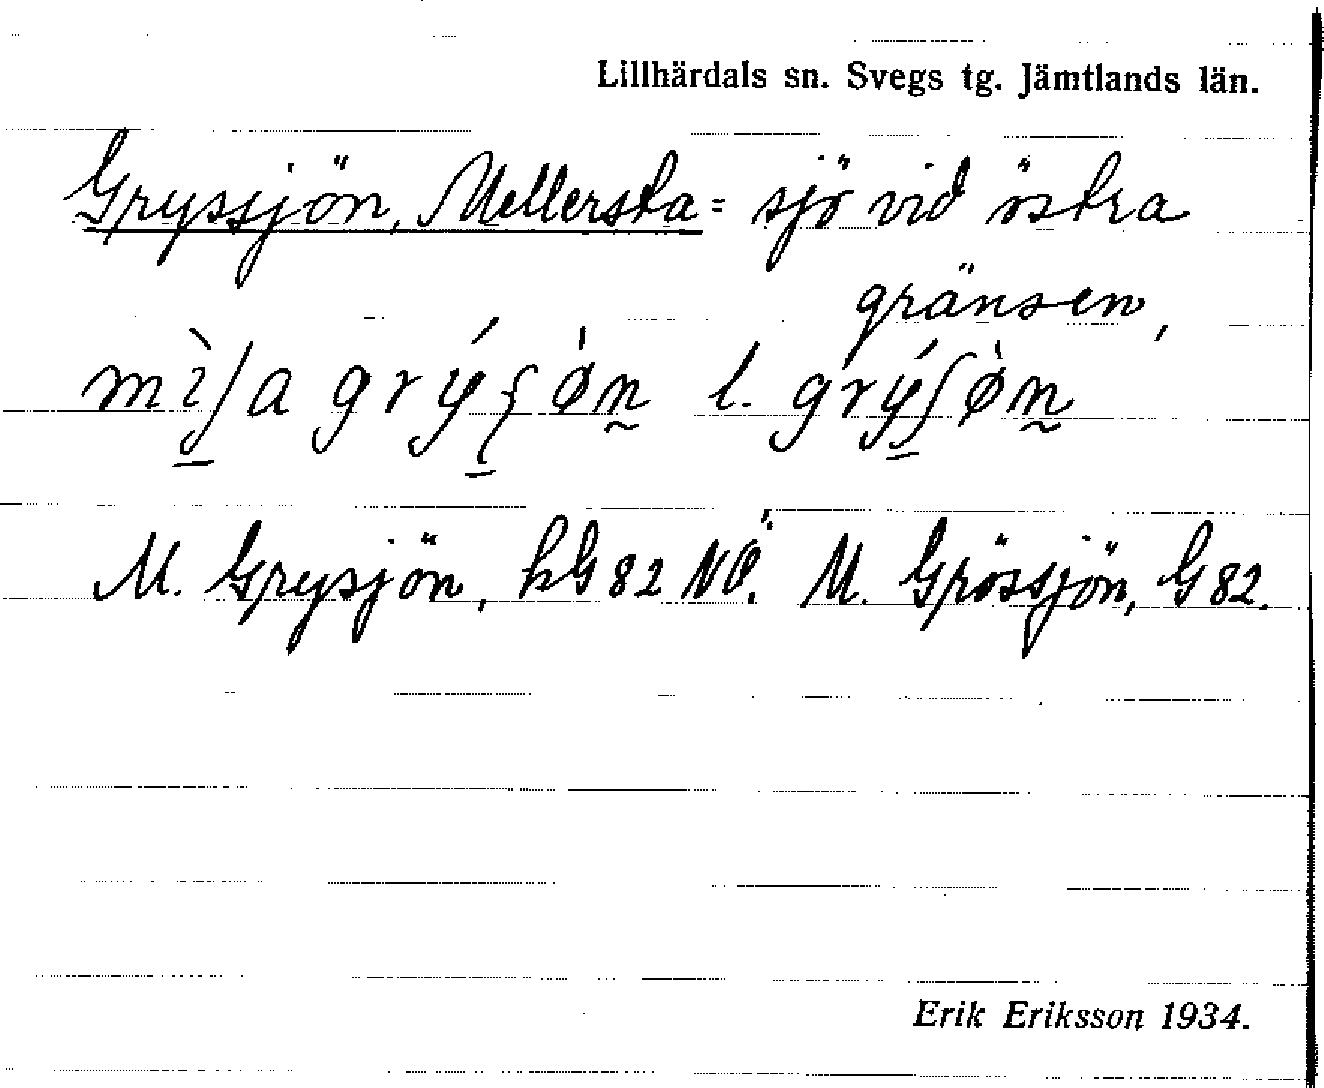 Lillhärdals sn. Svegs tg. Jämtlands län.
Gryssjön, Mellersta = sjö vid östra
gränsen,
l.
M. Grysjön, hG 82 NÖ. M. Grössjön, G 82.
Erik Eriksson 1934.